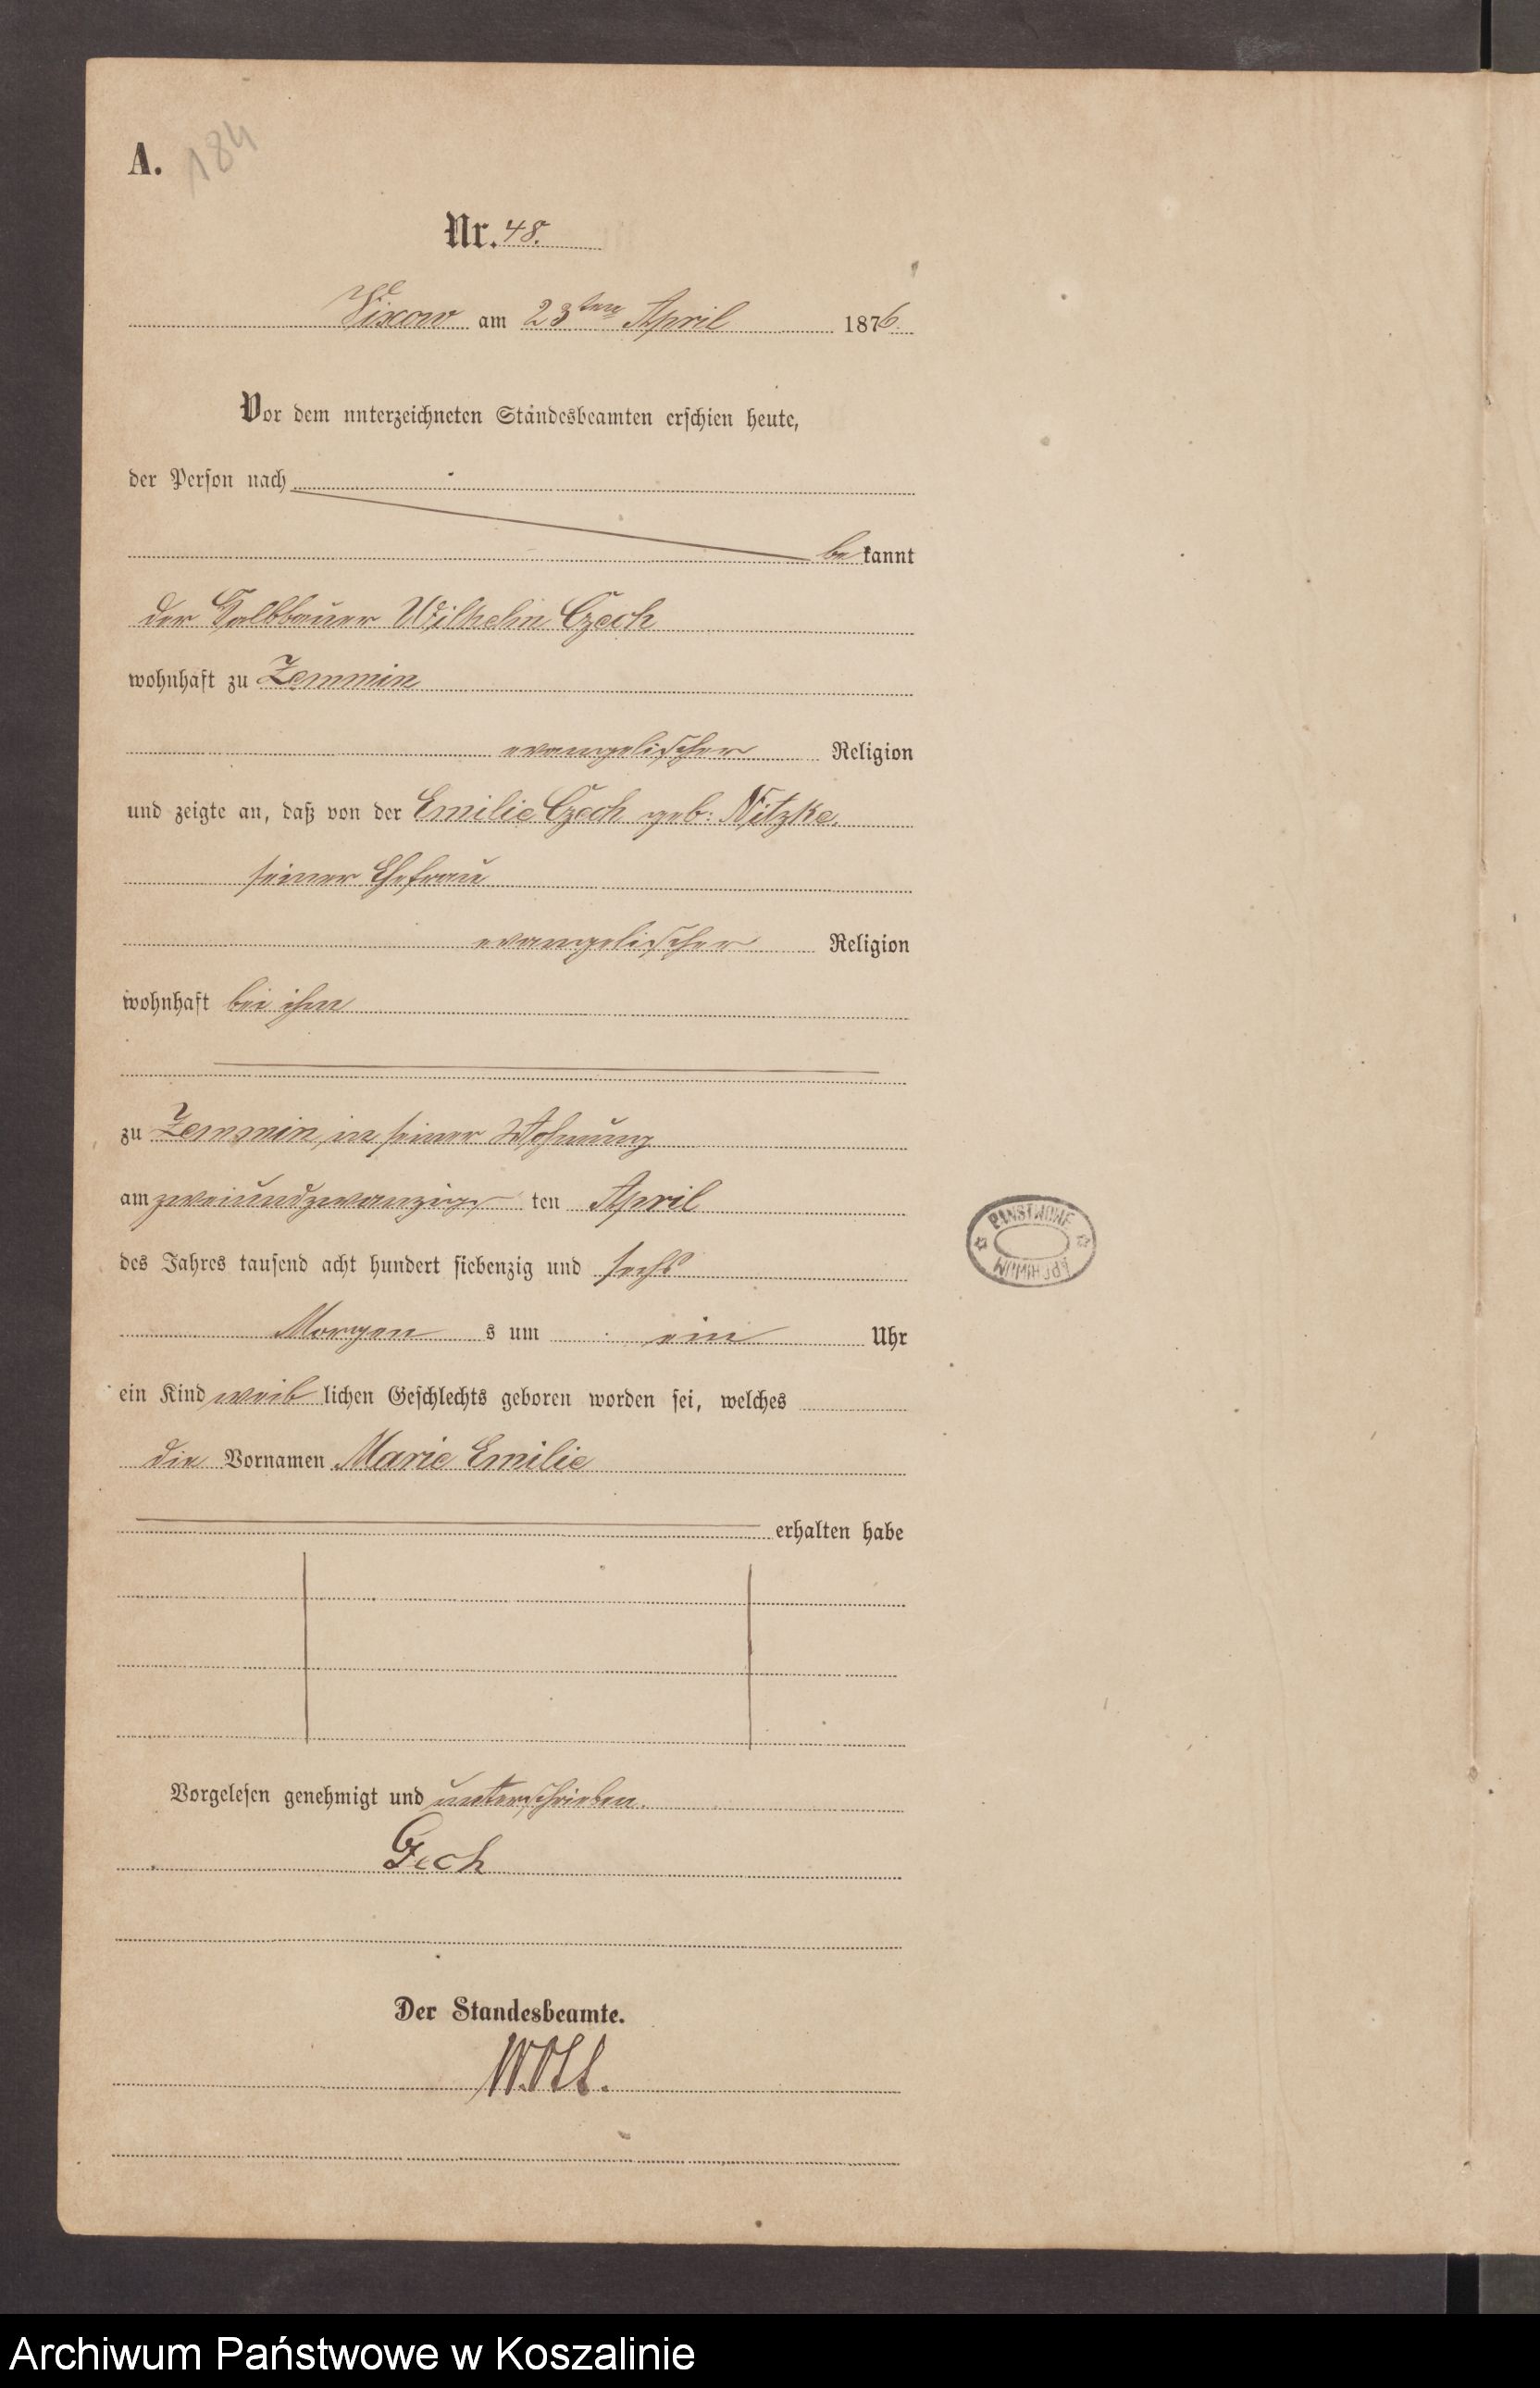 A. 184
Nr. 48.
am 23ten April 1876.
Vor dem unterzeichneten Standesbeamten erschien heute,
der Person nach
bekannt
der Halbbauer Wilhelm Czech
wohnhaft zu Zemmin
evangelischer Religion
und zeigte an, daß von der Emilie Czech geb: Nitzke,
seiner Ehefrau
evangelischer Religion
wohnhaft bei ihm
zu Zemmin, in seiner Wohnung
am zweiundzwanzig ten April
des Jahres tausend acht hundert siebenzig und sechs
Morgen s um ein Uhr
ein Kind weiblichen Geschlechts geboren worden sei, welches
die Vornamen Marie Emilie
erhalten habe
Vorgelesen genehmigt und unterschrieben.
Czech
Der Standesbeamte.
PAŃSTWOWE
ARCHIWUM
Archiwum Państwowe w Koszalinie